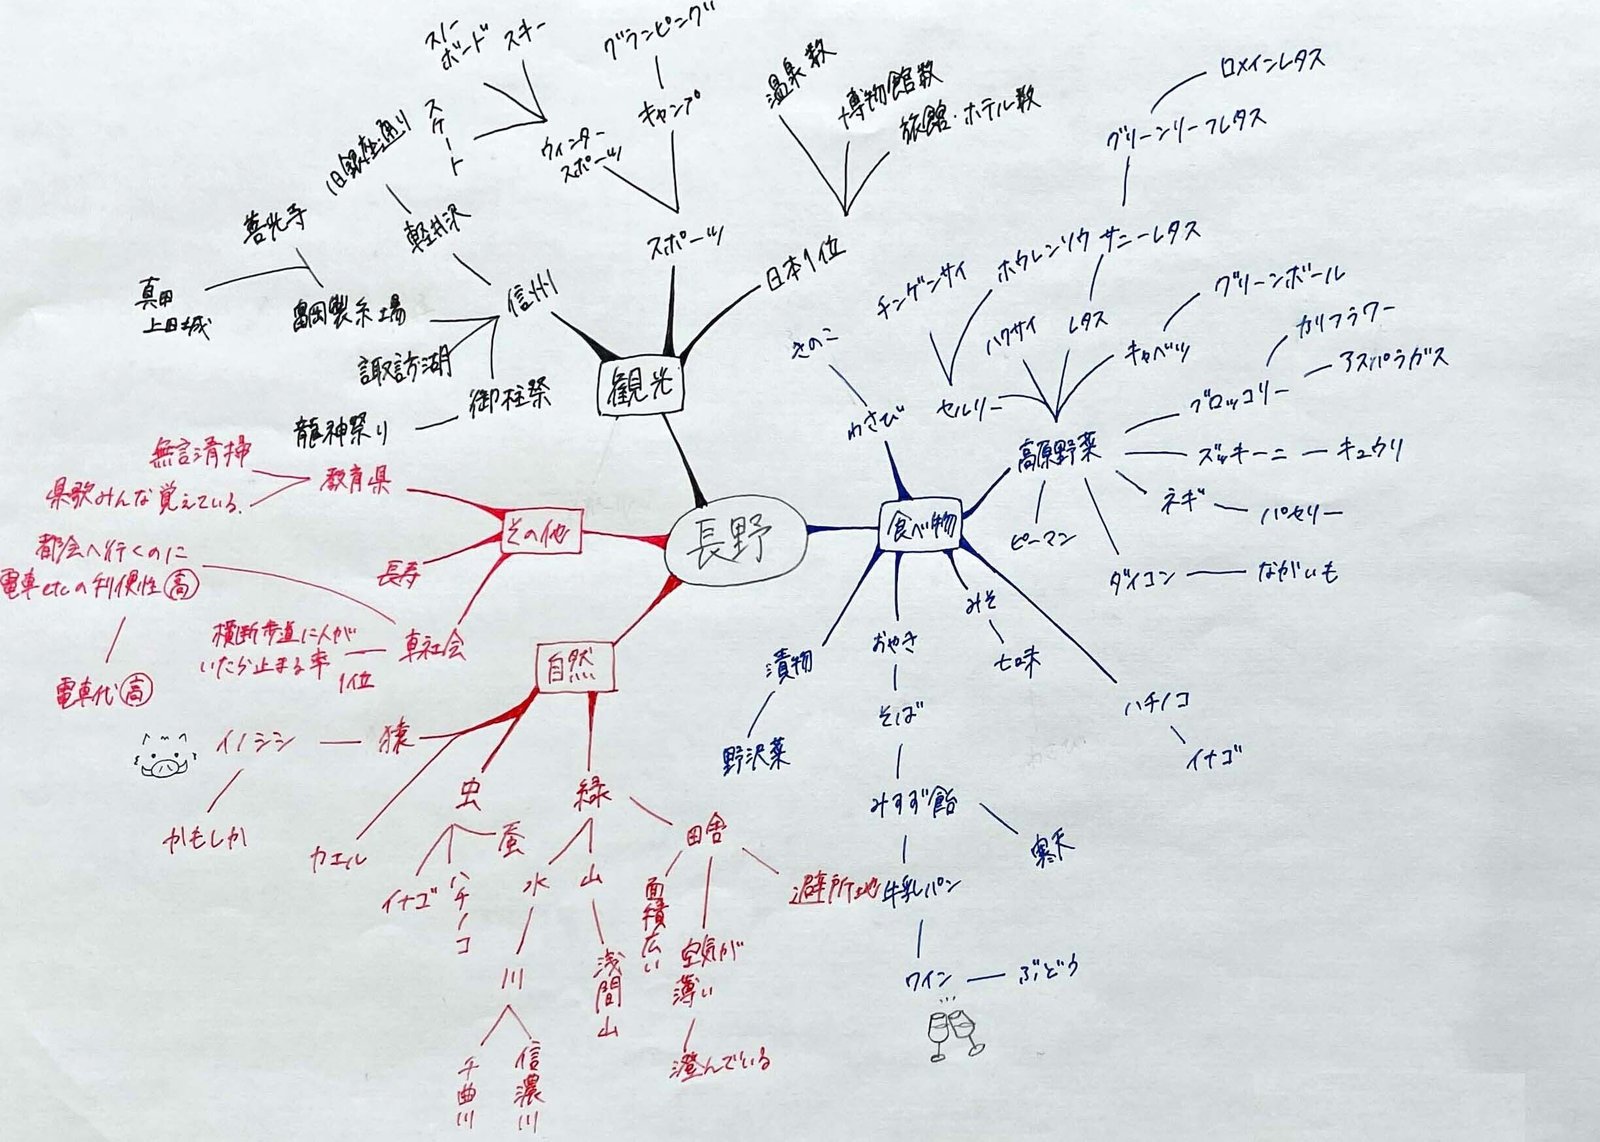 長野
観光
信州
軽井沢
旧銀座通り
富岡製糸場
善光寺
真田
上田城
諏訪湖
御柱祭
龍神祭り
スポーツ
ウィンター
スポーツ
スノー
ボード
スキー
スケート
キャンプ
グランピング
日本1位
温泉数
博物館数
旅館・ホテル数
食べ物
わさび
きのこ
高原野菜
セルリー
チンゲンサイ
ホウレンソウ
ハクサイ
レタス
サニーレタス
グリーンリーフレタス
ロメインレタス
キャベツ
グリーンボール
ブロッコリー
カリフラワー
アスパラガス
ズッキーニ
キュウリ
ネギ
パセリー
ダイコン
ながいも
ピーマン
ハチノコ
イナゴ
みそ
七味
おやき
そば
みすず飴
寒天
牛乳パン
ワイン
ぶどう
漬物
野沢菜
その他
教育県
無言清掃
県歌みんな覚えている.
長寿
車社会
都会へ行くのに
電車etcの利便性高
電車代高
横断歩道に人が
いたら止まる率
1位
自然
猿
イノシシ
かもしか
カエル
虫
イナゴ
ハチノコ
蚕
緑
水
川
千曲川
信濃川
山
浅間山
田舎
面積広い
空気が
薄い
澄んでいる
避所地